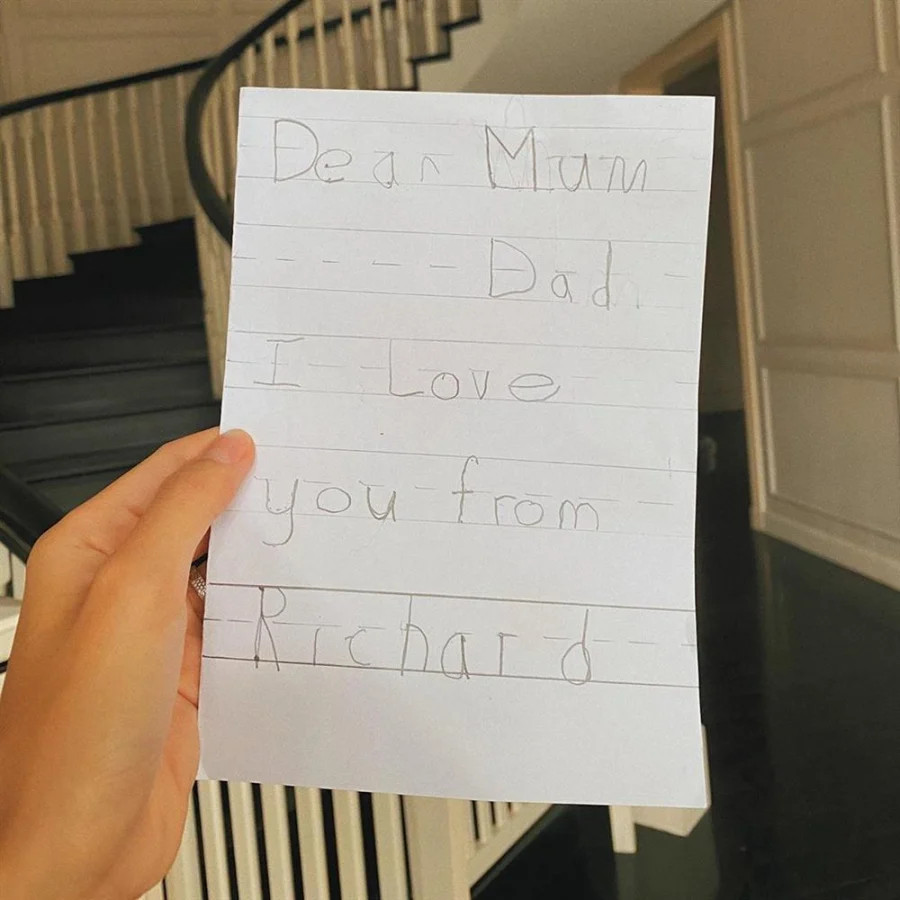 Dear Mum
Dad
I Love
you from
Richard